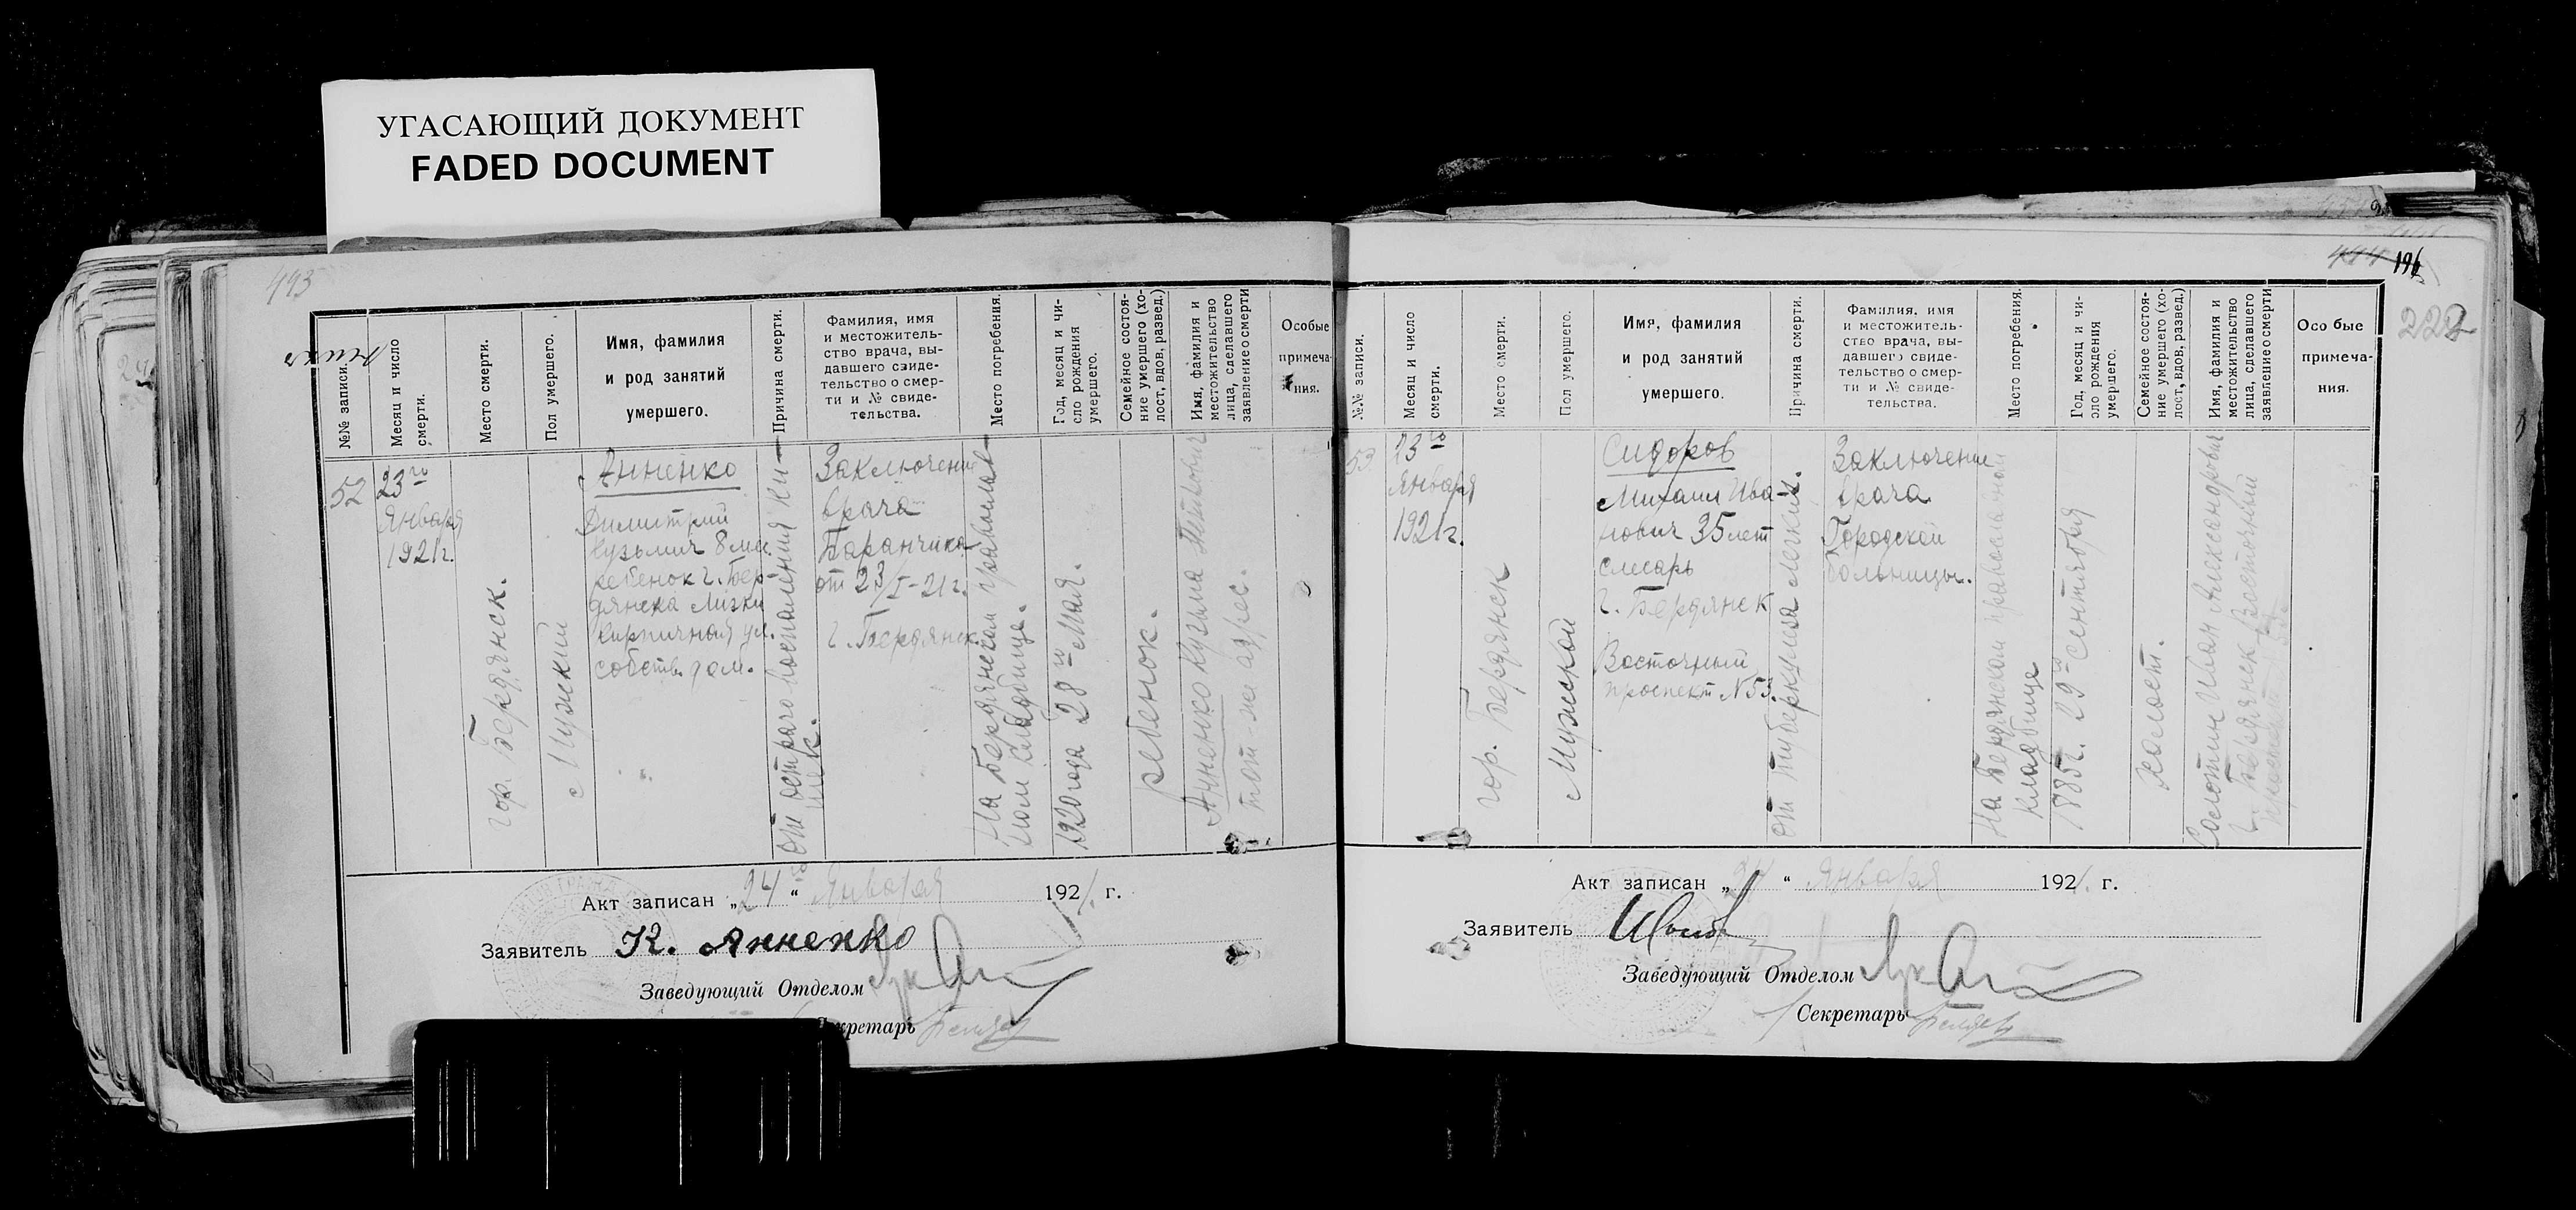 УГАСАЮЩИЙ ДОКУМЕНТ
FADED DOCUMENT
493
№№ записи.
Месяц и число
смерти.
Место смерти.
Пол умершего.
Имя, фамилия
и род занятий
умершего.
Причина смерти.
Фамилия, имя
и местожитель-
ство врача, вы-
давшего свиде-
тельство о смер-
ти и № свиде-
тельства.
Место погребения.
Год, месяц и чи-
сло рождения
умершего.
Семейное состоя-
ние умершего (хо-
лост, вдов, развед.)
Имя, фамилия и
местожительство
лица, сделавшего
заявление о смерти
Особые
примеча-
ния.
52
23го
Января
1921г.
гор. Бердянск.
Мужкий
Анненко
Димитрий
Кузьмич 8 мес.
ребенок г. Бер-
дянска Лиски
Кирпичная ул.
собств. дом.
От острого воспаления ки-
шек.
Заключение
врача
Баранчика
от 23/I-21г.
г. Бердянск.
На Бердянском православ-
ном кладбище.
1920 года 28го Мая.
ребенок.
Анненко Кузьма
тот-же адрес.
Акт записан „24“ Января 1921. г.
Заявитель К. Анненко
Заведующий Отделом
Секретарь
196
222
№№ записи.
Месяц и число
смерти.
Место смерти.
Пол умершего.
Имя, фамилия
и род занятий
умершего.
Причина смерти.
Фамилия, имя
и местожитель-
ство врача, вы-
давшего свиде-
тельство о смер-
ти и № свиде-
тельства.
Место погребения.
Год, месяц и чи-
сло рождения
умершего.
Семейное состоя-
ние умершего (хо-
лост, вдов, развед.)
Имя, фамилия и
местожительство
лица, сделавшего
заявление о смерти
Особые
примеча-
ния.
53
23го
Января
1921г.
гор. Бердянск
Мужской
Сидоров
Михаил Ива-
нович 35 лет
слесарь
г. Бердянск
Восточный
проспект N53.
от туберкулеза легких.
Заключение
врача
Городской
больницы.
На Бердянском православном
кладбище
1885г. 29го Сентября
холост.
Иван Александрович
г. Бердянск Восточный
проспект 53.
Акт записан „24“ Января 1921. г.
Заявитель
Заведующий Отделом
Секретарь